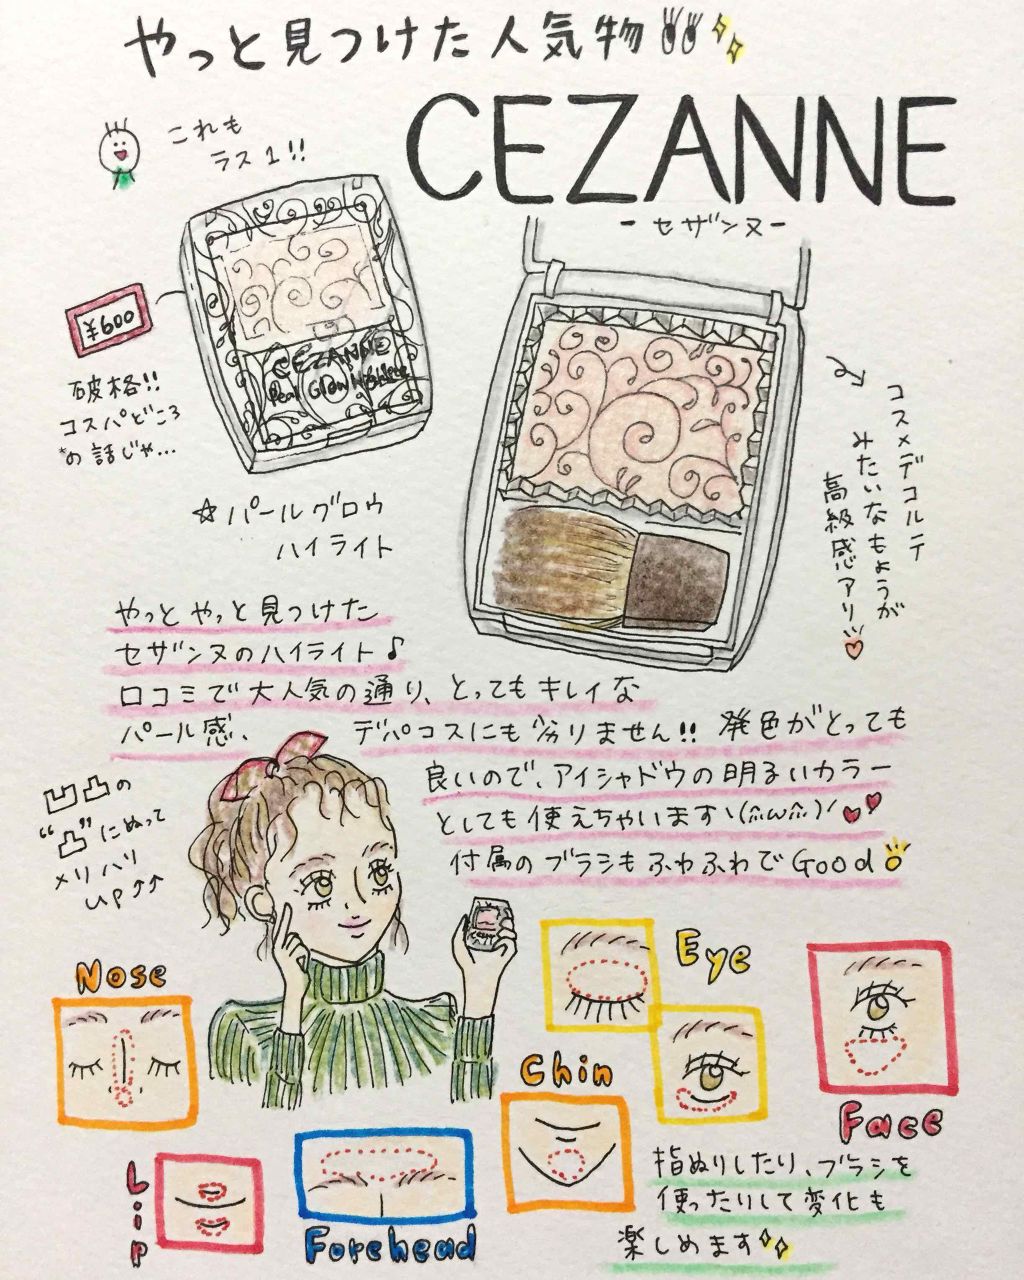 やっと見つけた人気物
これも
ラス1!!
CEZANNE
-セザンヌ-
¥600
破格!!
コスパどころ
の話じゃ...
CEZANNE
Pearl Glow Highlight
コスメデコルテ
みたいなもようが
高級感アリ
☆パールグロウ
ハイライト
やっとやっと見つけた
セザンヌのハイライト♪
口コミで大人気の通り、とってもキレイな
パール感、デパコスにも劣りません!! 発色がとっても
良いので、アイシャドウの明るいカラー
としても使えちゃいますヽ(^ω^)ノ
付属のブラシもふわふわでGood
凹凸の
"凸"にぬって
メリハリ
UP↑↑
Nose
Eye
Chin
Face
Lip
Forehead
指ぬりしたり、ブラシを
使ったりして変化も
楽しめます